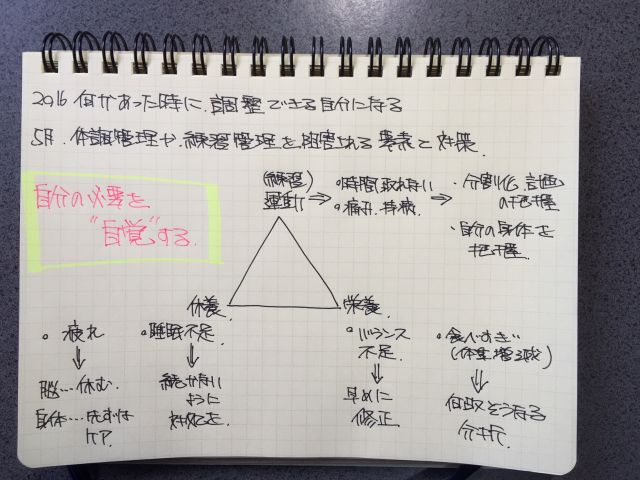 2016 何かあった時に、調整できる自分になる
5月. 体調管理や、練習管理を阻害される要素と対策.
自分の必要を
"自覚"する.
(練習)
運動 ⇒
・時間取れない
・痛み、持病
⇒ ・分割化 計画
の把握
・自分の身体を
把握.
休養.
栄養.
・疲れ
⇓
脳…休む.
身体…まずは
ケア.
・睡眠不足
⇓
続かない
ように
対処を.
・バランス
不足.
⇓
早めに
修正
・食べすぎ
(体重増減)
⇓
何故そうなる
分析.